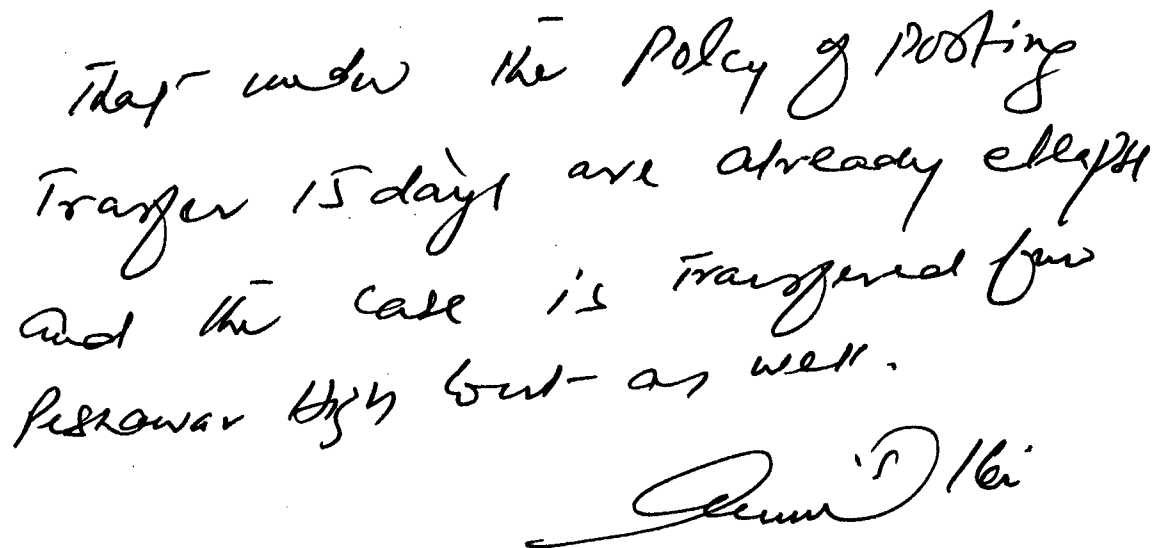 That under the Polcy of Posting
Transfer 15 days are already ellapse
and the case is Transfered from
Peshawar High Court as well.